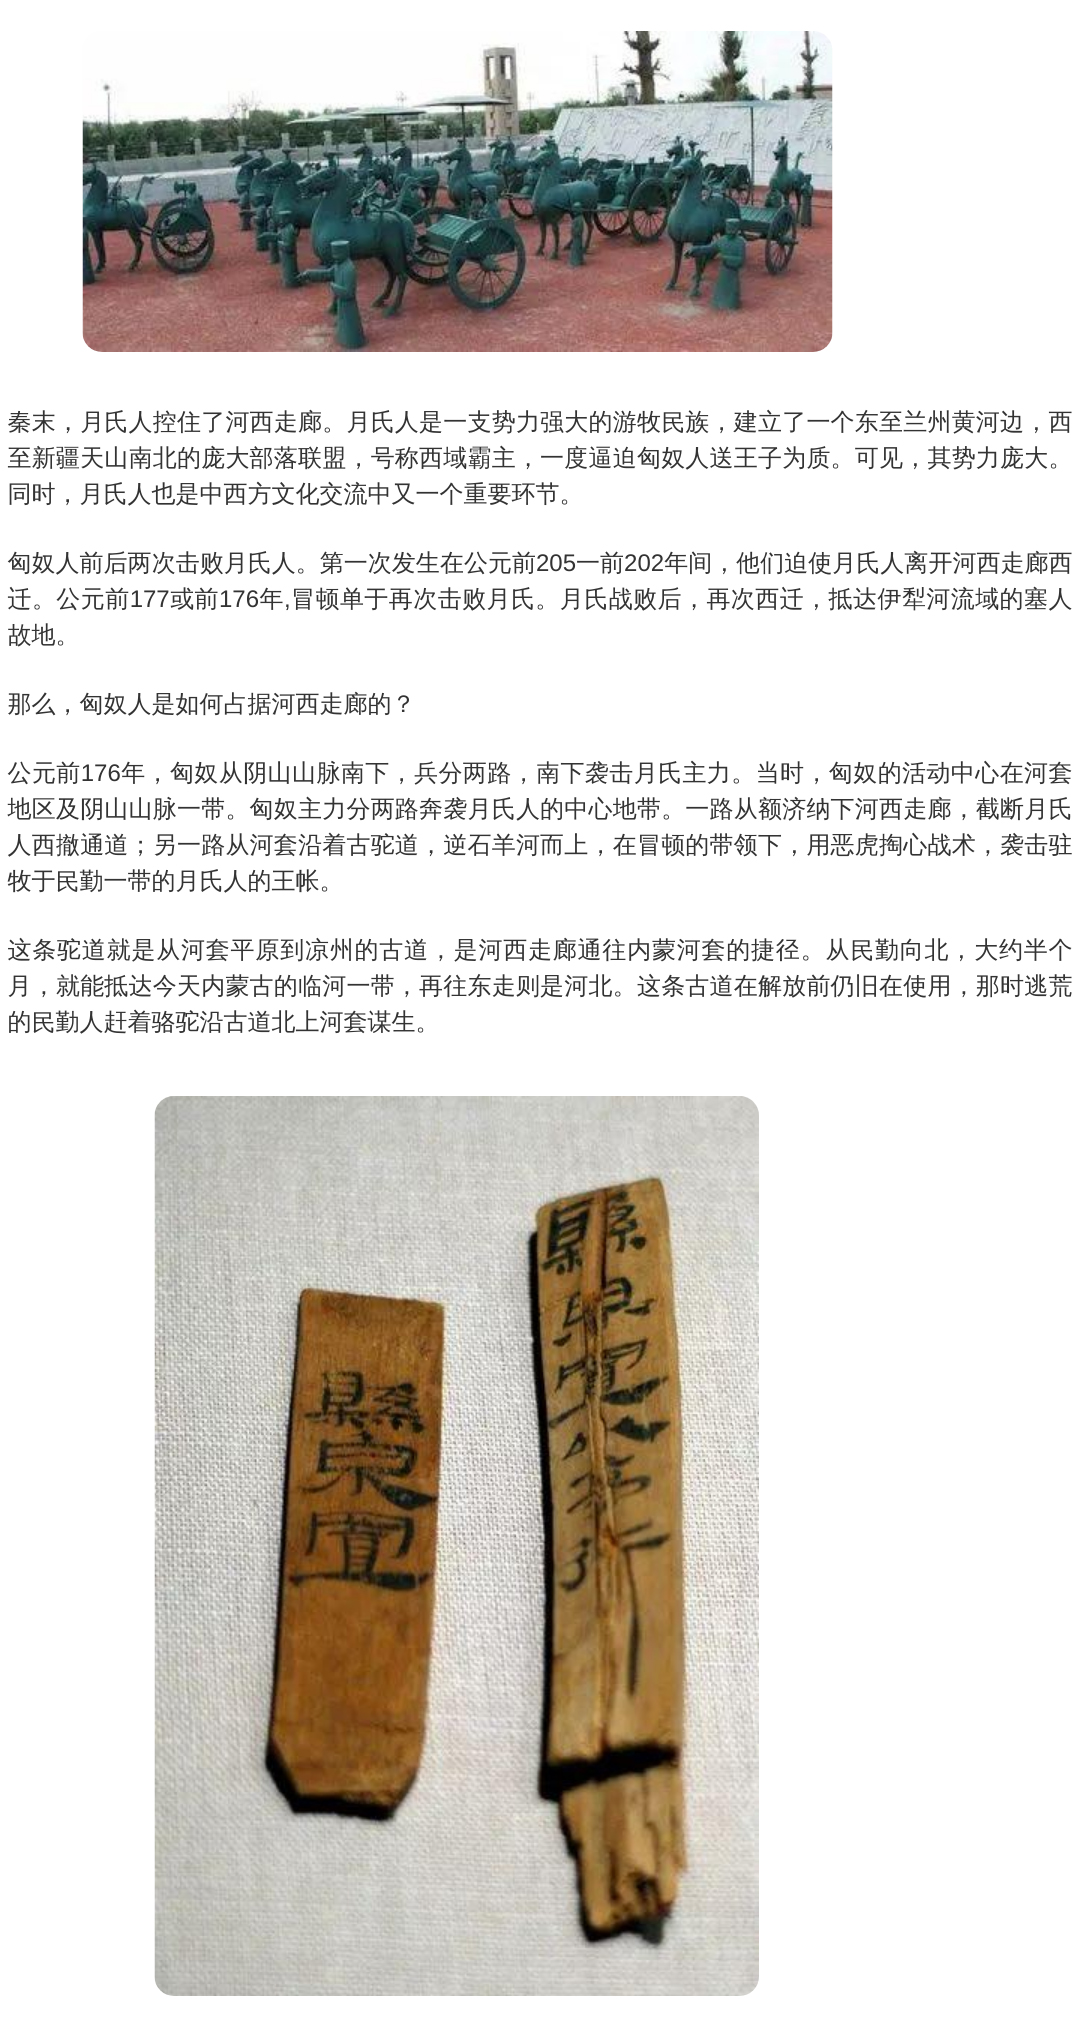 秦末，月氏人控住了河西走廊。月氏人是一支势力强大的游牧民族，建立了一个东至兰州黄河边，西
至新疆天山南北的庞大部落联盟，号称西域霸主，一度逼迫匈奴人送王子为质。可见，其势力庞大。
同时，月氏人也是中西方文化交流中又一个重要环节。
匈奴人前后两次击败月氏人。第一次发生在公元前205一前202年间，他们迫使月氏人离开河西走廊西
迁。公元前177或前176年,冒顿单于再次击败月氏。月氏战败后，再次西迁，抵达伊犁河流域的塞人
故地。
那么，匈奴人是如何占据河西走廊的？
公元前176年，匈奴从阴山山脉南下，兵分两路，南下袭击月氏主力。当时，匈奴的活动中心在河套
地区及阴山山脉一带。匈奴主力分两路奔袭月氏人的中心地带。一路从额济纳下河西走廊，截断月氏
人西撤通道；另一路从河套沿着古驼道，逆石羊河而上，在冒顿的带领下，用恶虎掏心战术，袭击驻
牧于民勤一带的月氏人的王帐。
这条驼道就是从河套平原到凉州的古道，是河西走廊通往内蒙河套的捷径。从民勤向北，大约半个
月，就能抵达今天内蒙古的临河一带，再往东走则是河北。这条古道在解放前仍旧在使用，那时逃荒
的民勤人赶着骆驼沿古道北上河套谋生。
縣泉置
縣泉置